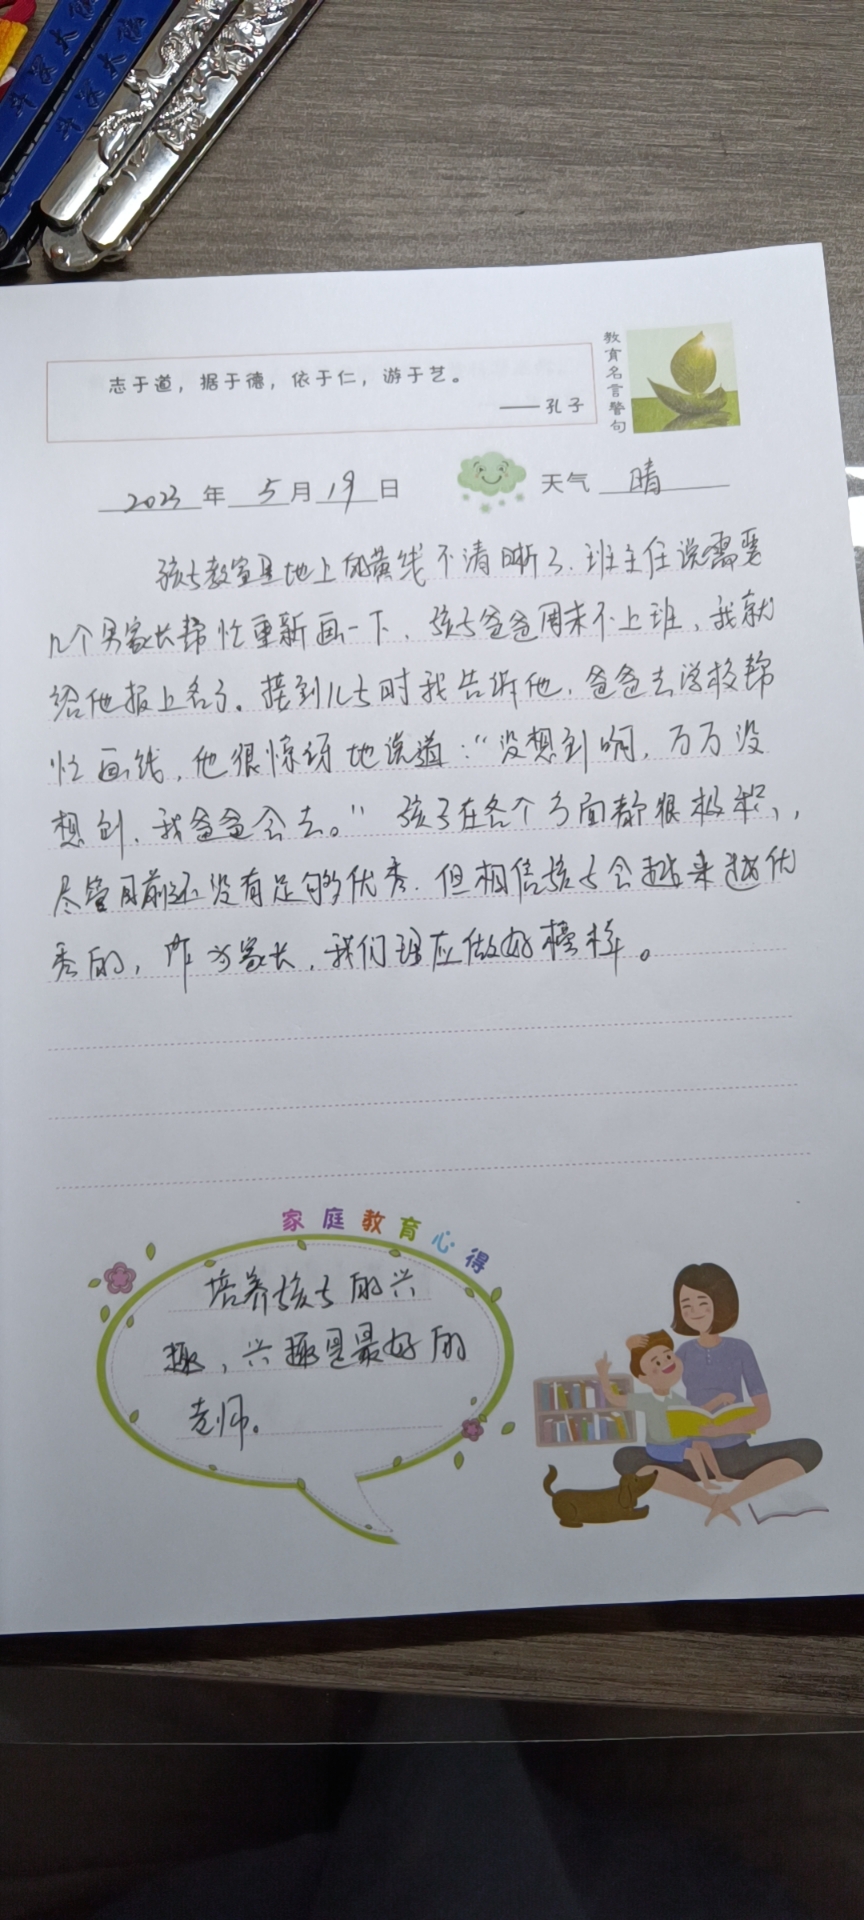 志于道，据于德，依于仁，游于艺。
——孔子
教育名言警句
2023年5月19日 天气 晴
孩子教室里地上的黄线不清晰了，班主任说需要
几个男家长帮忙重新画一下，孩子爸爸周末不上班，我就
给他报上名了。接到儿子时我告诉他，爸爸去学校帮
忙画线，他很惊讶地说道："没想到啊，万万没
想到，我爸爸会去。"孩子在各个方面都很积极，
尽管目前还没有足够优秀，但相信孩子会越来越优
秀的，作为家长，我们理应做好榜样。
家庭教育心得
培养孩子的兴
趣，兴趣是最好的
老师。